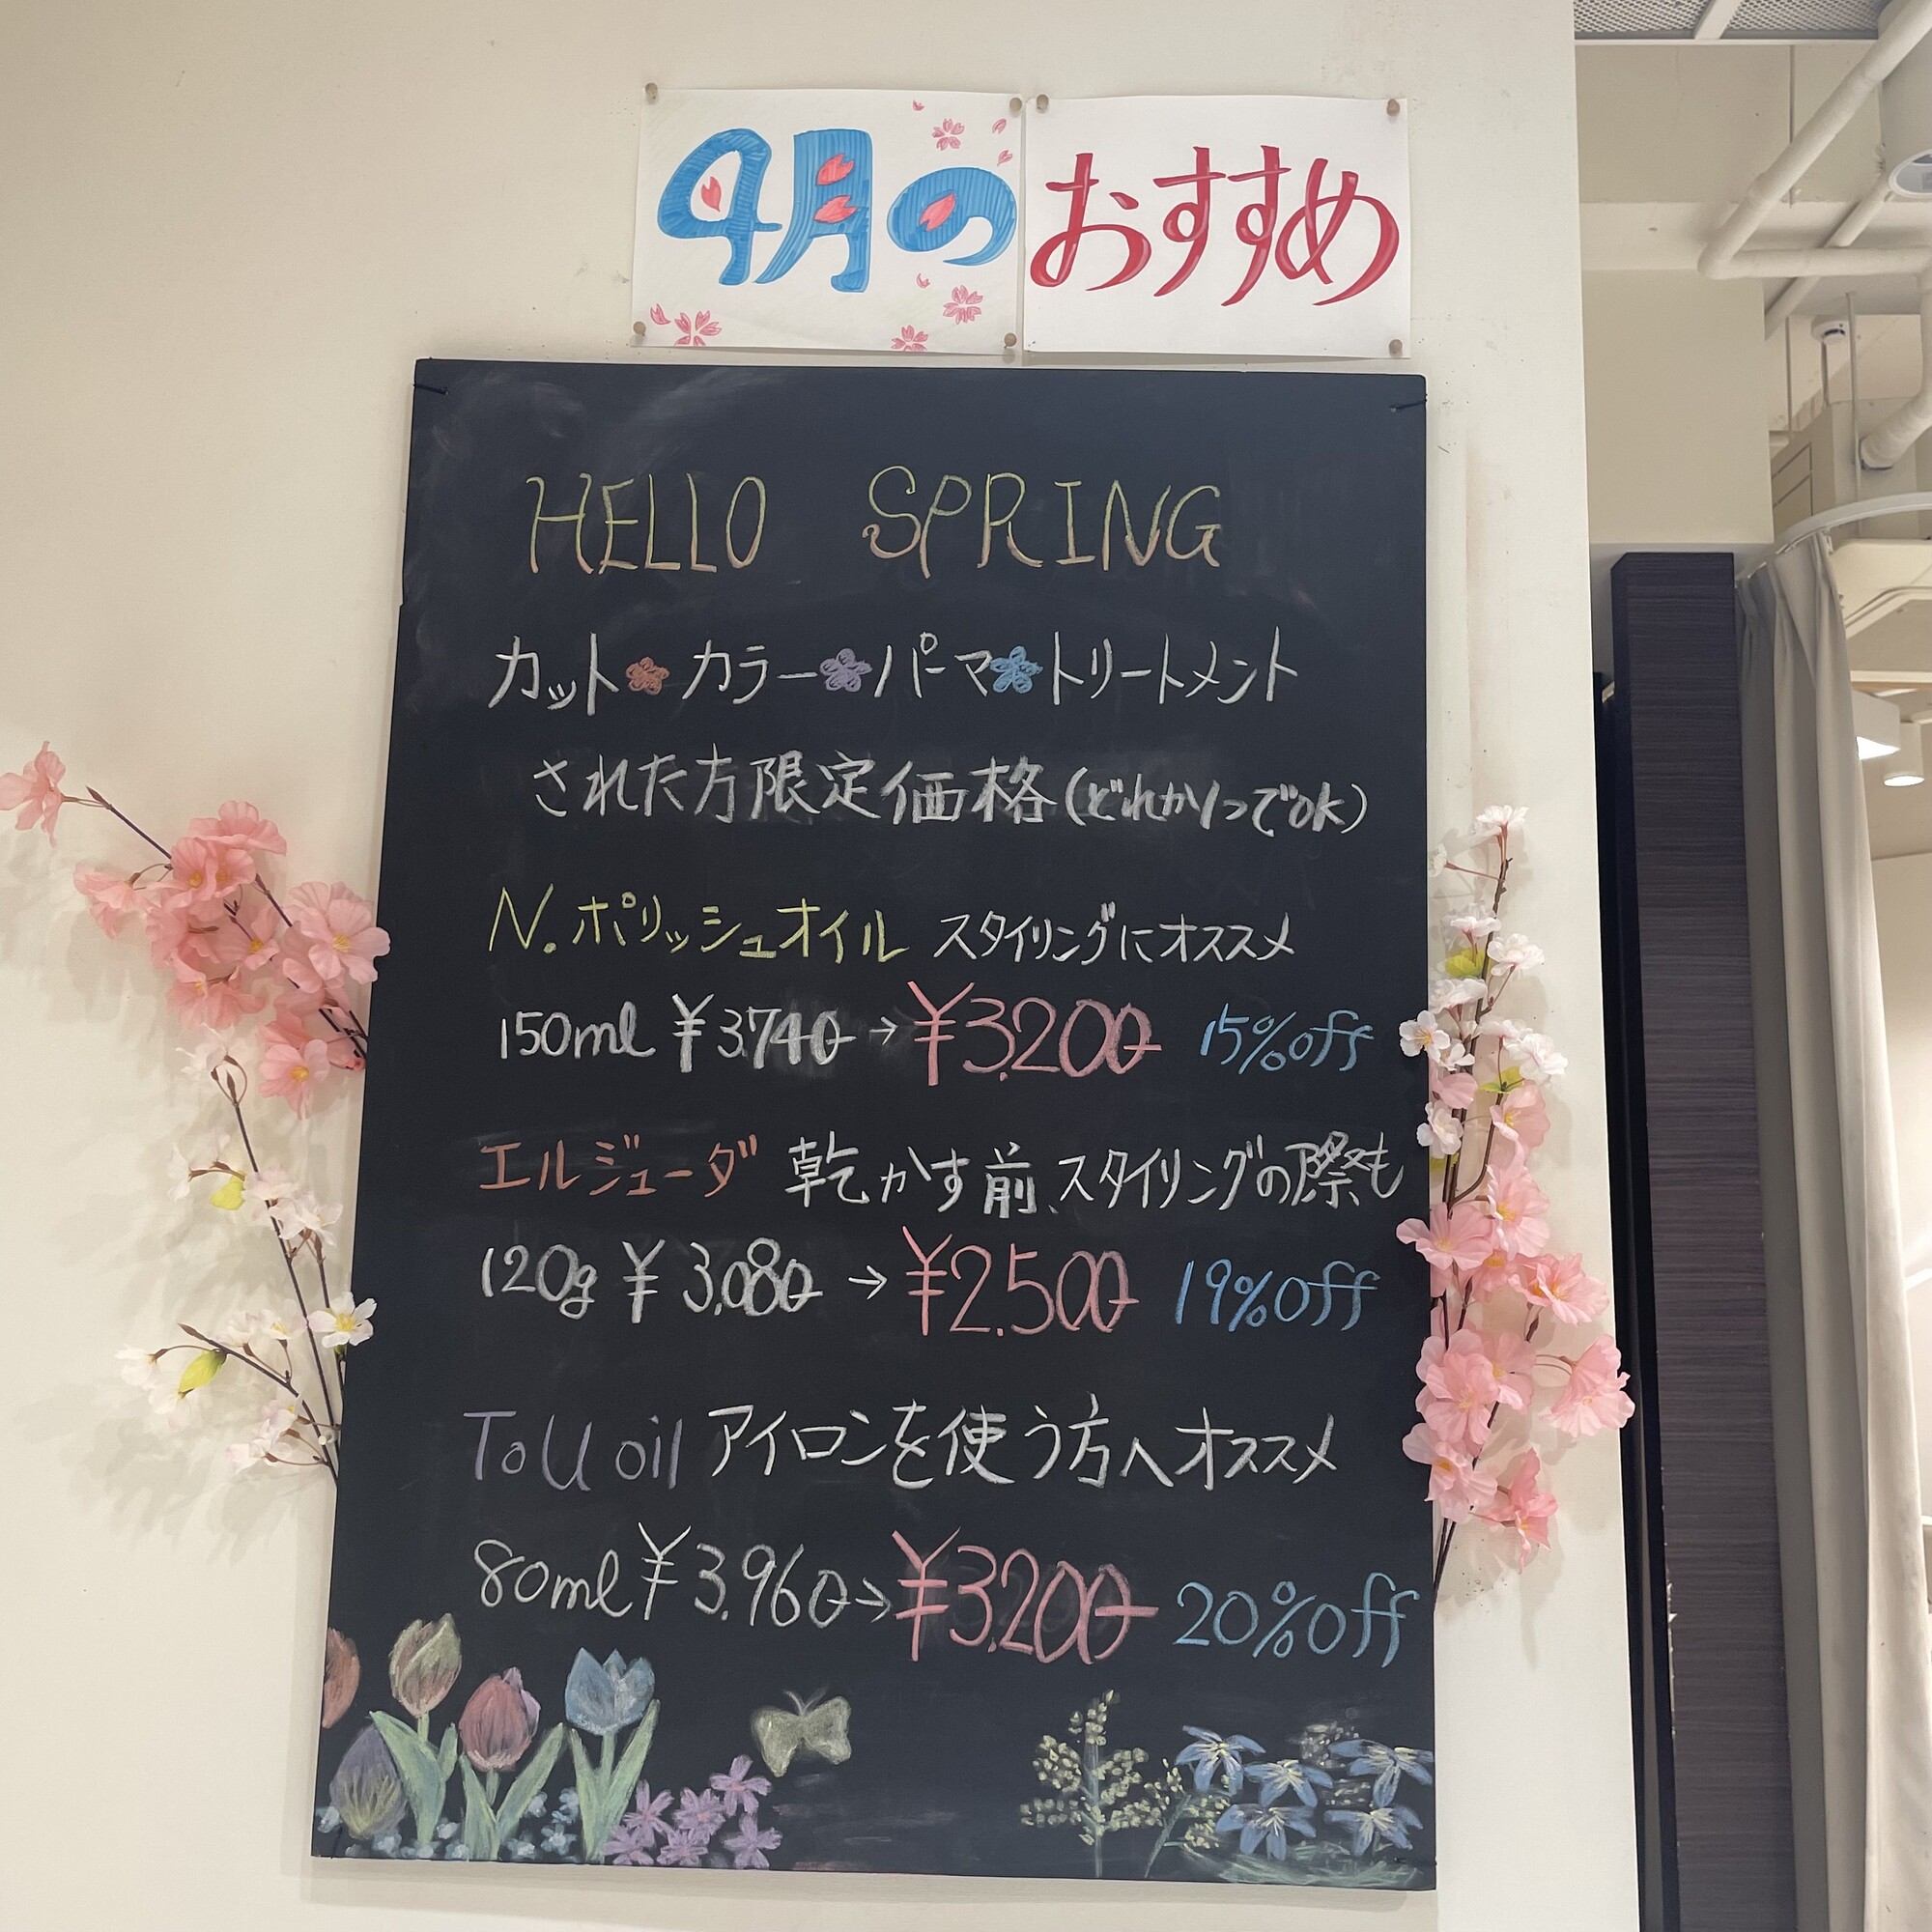 4月の おすすめ
HELLO SPRING
カット カラー パーマ トリートメント
された方限定価格(どれか1つでOK)
N.ポリッシュオイル スタイリングにオススメ
150ml ¥3,740→¥3,200 15%off
エルジューダ 乾かす前、スタイリングの際も
120g ¥3,080→¥2,500 19%off
ToU oil アイロンを使う方へオススメ
80ml ¥3,960→¥3,200 20%off